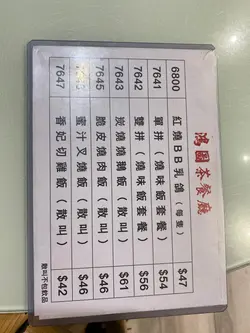 鴻圖茶餐廳
6800 紅燒BB乳鴿(每隻) $47
7641 單拼(燒味飯套餐) $54
7642 雙拼(燒味飯套餐) $56
7643 炭燒燒鵝飯(散叫) $61
7645 脆皮燒肉飯(散叫) $46
蜜汁叉燒飯(散叫) $46
7647 香妃切雞飯(散叫) $42
散叫不包飲品